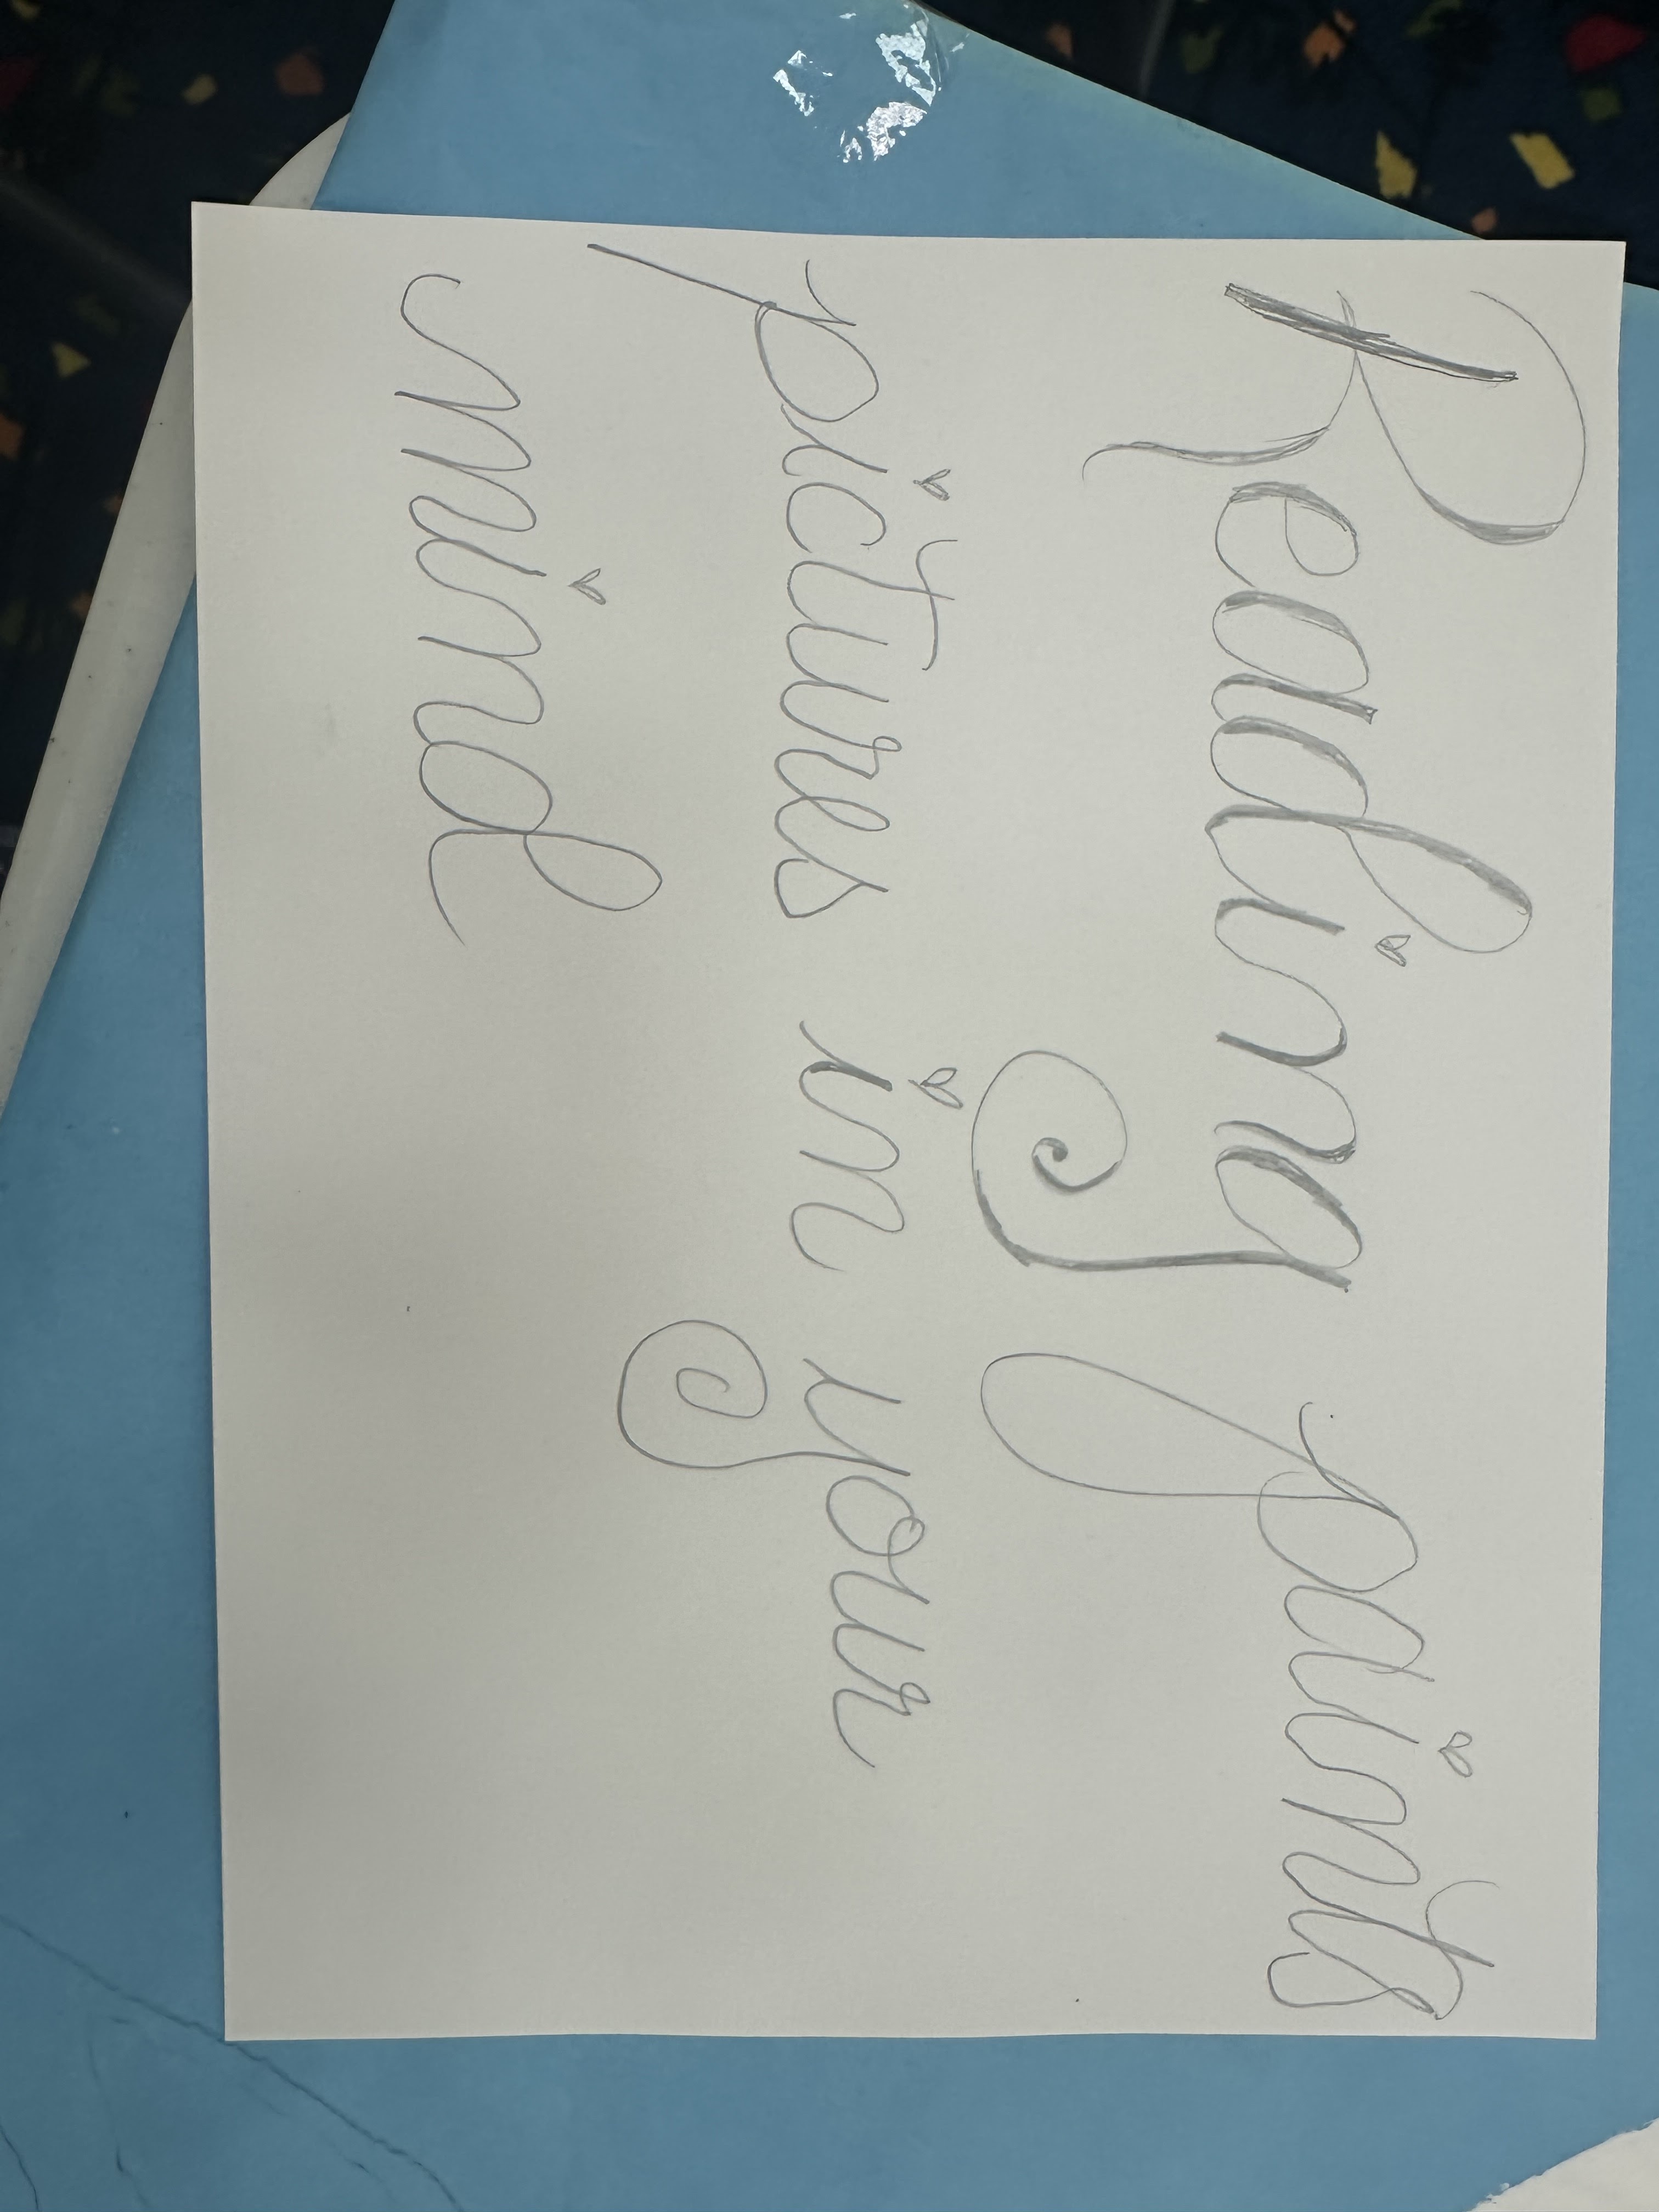 Reading paints
pictures in your
mind